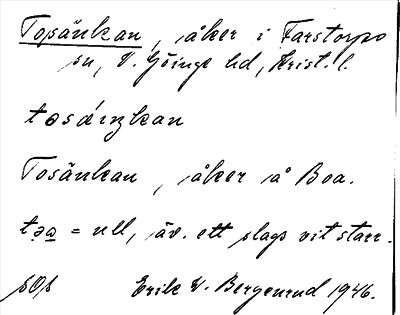 Tosänkan, åker i Farstorps
sn, V. Göinge hd, Krist. l.
tosáŋkan
Tosänkan, åker å Boa.
toa = ull, äv. ett slags vit starr.
Erik V. Bergenrud 1946.